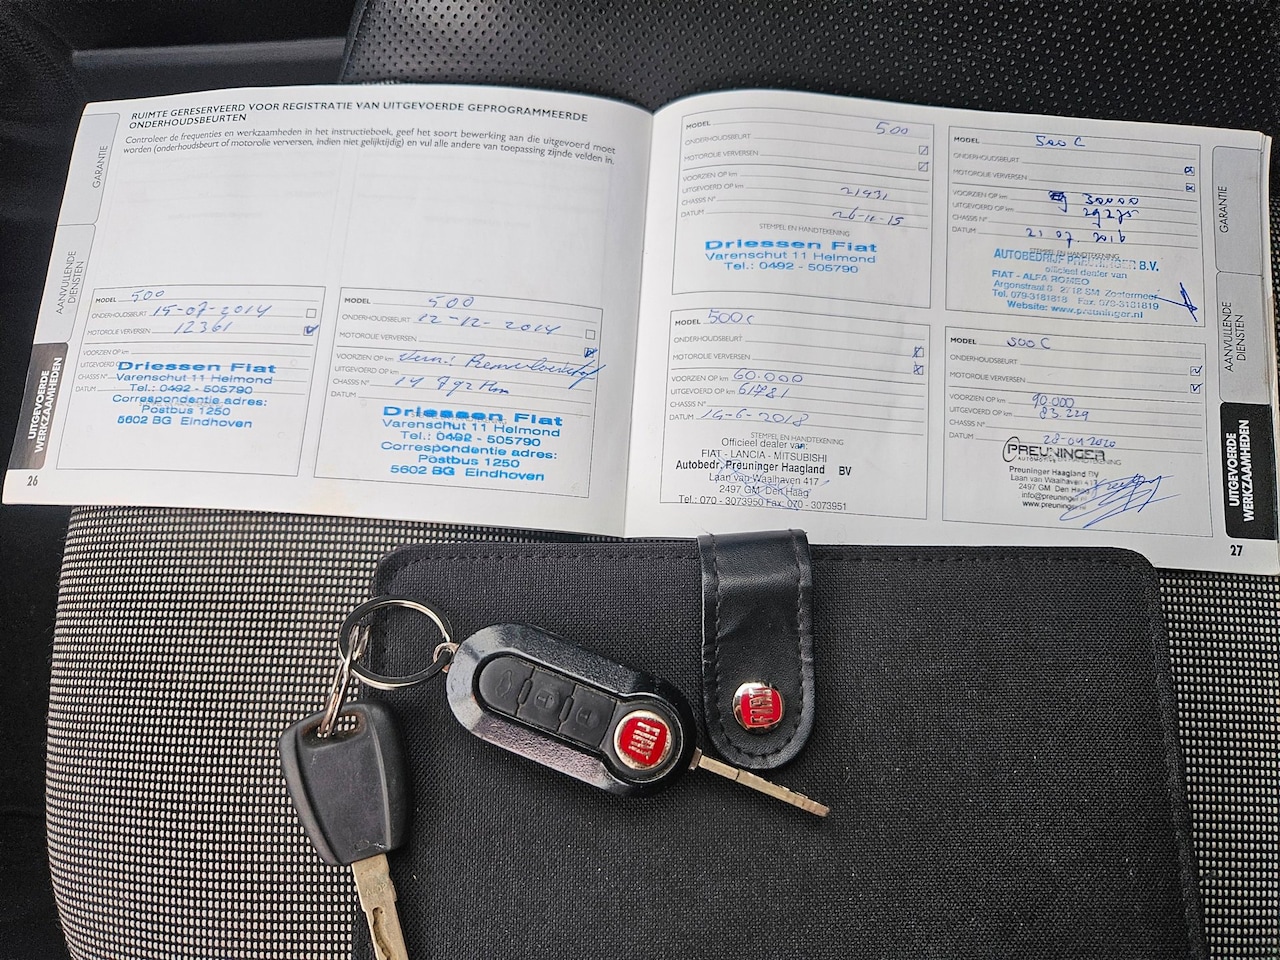 RUIMTE GERESERVEERD VOOR REGISTRATIE VAN UITGEVOERDE GEPROGRAMMEERDE
ONDERHOUDSBEURTEN
Controleer de frequenties en werkzaamheden in het instructieboek, geef het soort bewerking aan die uitgevoerd moet
worden (onderhoudsbeurt of motorolie verversen, indien niet gelijktijdig) en vul alle andere van toepassing zijnde velden in.
GARANTIE
AANVULLENDE
DIENSTEN
UITGEVOERDE
WERKZAAMHEDEN
26
MODEL 500
ONDERHOUDSBEURT 15-07-2014
MOTOROLIE VERVERSEN 12361
VOORZIEN OP km
UITGEVOERD OP
CHASSIS N°
DATUM
Driessen Fiat
Varenschut 11 Helmond
Tel.: 0492 - 505790
Correspondentie adres:
Postbus 1250
5602 BG Eindhoven
MODEL 500
ONDERHOUDSBEURT 12-12-2014
MOTOROLIE VERVERSEN
VOORZIEN OP km
UITGEVOERD OP km
CHASSIS N°
DATUM
Driessen Fiat
Varenschut 11 Helmond
Tel.: 0492 - 505790
Correspondentie adres:
Postbus 1250
5602 BG Eindhoven
MODEL 500
ONDERHOUDSBEURT
MOTOROLIE VERVERSEN
VOORZIEN OP km
UITGEVOERD OP km 21931
CHASSIS N°
DATUM
STEMPEL EN HANDTEKENING
Driessen Fiat
Varenschut 11 Helmond
Tel.: 0492 - 505790
MODEL 500c
ONDERHOUDSBEURT
MOTOROLIE VERVERSEN
VOORZIEN OP km 60.000
UITGEVOERD OP km 61781
CHASSIS N°
DATUM 14-6-2018
STEMPEL EN HANDTEKENING
Officieel dealer van:
FIAT - LANCIA - MITSUBISHI
Autobedr. Preuninger Haagland BV
Laan van Waalhaven 417
2497 GM Den Haag
Tel.: 070 - 3073950 Fax. 070 - 3073951
MODEL 500 C
ONDERHOUDSBEURT
MOTOROLIE VERVERSEN
VOORZIEN OP km 30000
UITGEVOERD OP km 29275
CHASSIS N°
DATUM 21 07. 2016
STEMPEL EN HANDTEKENING
AUTOBEDRIJF PREUNINGER B.V.
officieel dealer van
FIAT - ALFA ROMEO
Argonstraat 8 2718 SM Zoetermeer
Tel. 079-3181818 Fax. 079-3181819
Website: www.preuninger.nl
MODEL 500 C
ONDERHOUDSBEURT
MOTOROLIE VERVERSEN
VOORZIEN OP km 90.000
UITGEVOERD OP km 83 229
CHASSIS N°
DATUM 28-04-2020
PREUNINGER
Preuninger Haagland BV
Laan van Waalhaven 417
2497 GM Den Haag
info@preuninger.nl
www.preuninger.nl
GARANTIE
AANVULLENDE
DIENSTEN
UITGEVOERDE
WERKZAAMHEDEN
27
FIAT